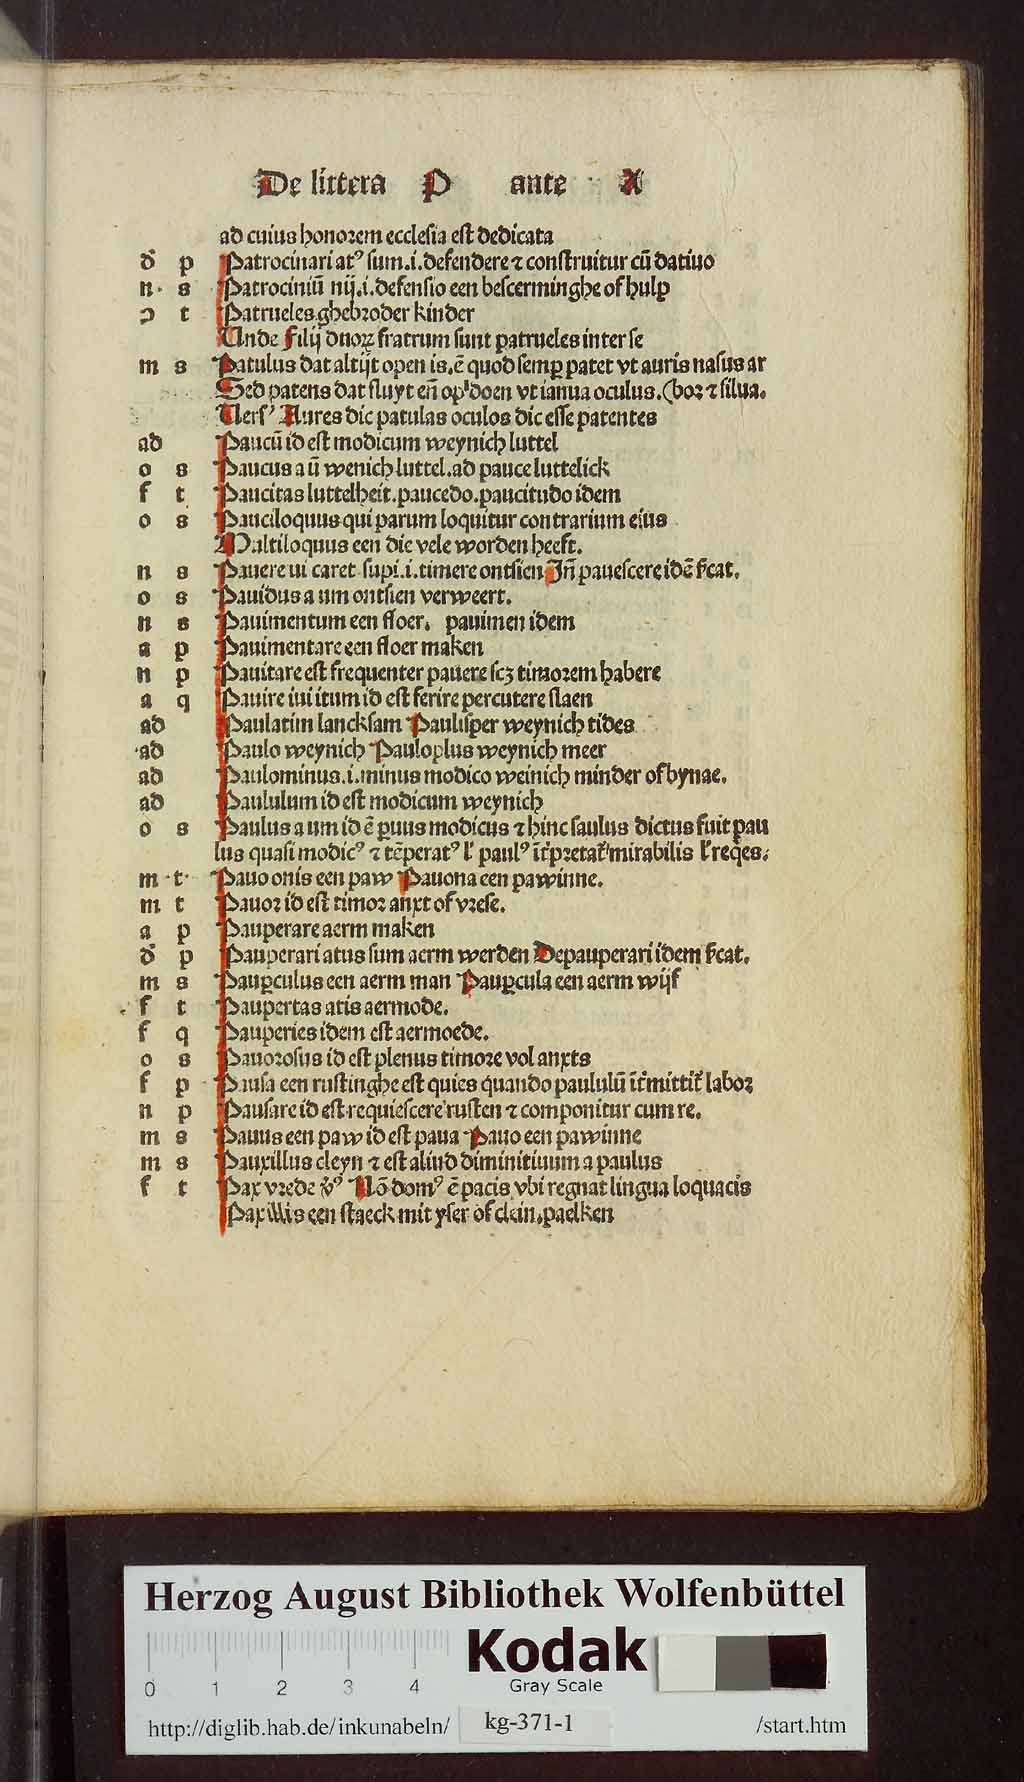 De littera P ante X
ad cuius honoꝛem ecclesia est dedicata
d̕ p Patrocinari atꝰ sum.i.defendere ⁊ construitur cū datiuo
n s Patrociniū nij.i.defensio een bescerminghe of hulp
ɔ t Patrueles ghebꝛoder kinder
Unde filij duoꝝ fratrum sunt patrueles inter se
m s Patulus dat altijt open is.ē quod semꝑ patet vt auris nasus ar
Sed patens dat sluyt en̄ opdoen vt ianua oculus.(boꝛ ⁊ silua.
Versꝰ Aures dic patulas oculos dic esse patentes
ad Paucū id est modicum weynich luttel
o s Paucus a ū wenich luttel.ad pauce luttelick
f t Paucitas luttelheit.paucedo.paucitudo idem
o s Pauciloquus qui parum loquitur contrarium eius
Multiloquus een die vele woꝛden heeft.
n s Pauere ui caret supi.i.timere ontsien Jn̄ pauescere idē s̄cat.
o s Pauidus a um ontsien verweert.
n s Pauimentum een floer. pauimen idem
a p Pauimentare een floer maken
n p Pauitare est frequenter pauere scꝫ timoꝛem habere
a q Pauire iui itum id est ferire percutere slaen
ad Paulatim lancksam Paulisper weynich tides
ad Paulo weynich Pauloplus weynich meer
ad Paulominus.i.minus modico weinich minder of bynae.
ad Paululum id est modicum weynich
o s Paulus a um id ē ꝑuus modicus ⁊ hinc saulus dictus fuit pau
lus quasi modicꝰ ⁊ tēperatꝰ lˀ paulꝰ īt̕pꝛetat̕ mirabilis lˀ reqͥes.
m t Pauo onis een paw Pauona een pawinne.
m t Pauoꝛ id est timoꝛ anxt of vꝛese.
a p Pauperare aerm maken
d̕ p Pauperari atus sum aerm werden Depauperari idem s̄cat.
m s Pauꝑculus een aerm man Pauꝑcula een aerm wijf
f t Paupertas atis aermode.
f q Pauperies idem est aermoede.
o s Pauoꝛosus id est plenus timoꝛe vol anxts
f p Pausa een rustinghe est quies quando paululū īt̕mittit̕ laboꝛ
n p Pausare id est requiescere rusten ⁊ componitur cum re.
m s Pauus een paw id est paua Pauo een pawinne
m s Pauxillus cleyn ⁊ est aliud diminitiuum a paulus
f t Pax vꝛede v̕ꝰ Nō domꝰ ē pacis vbi regnat lingua loquacis
Paxillis een staeck mit yser of clein.paelken
Herzog August Bibliothek Wolfenbüttel
Kodak
Gray Scale
0 1 2 3 4
http://diglib.hab.de/inkunabeln/ kg-371-1 /start.htm